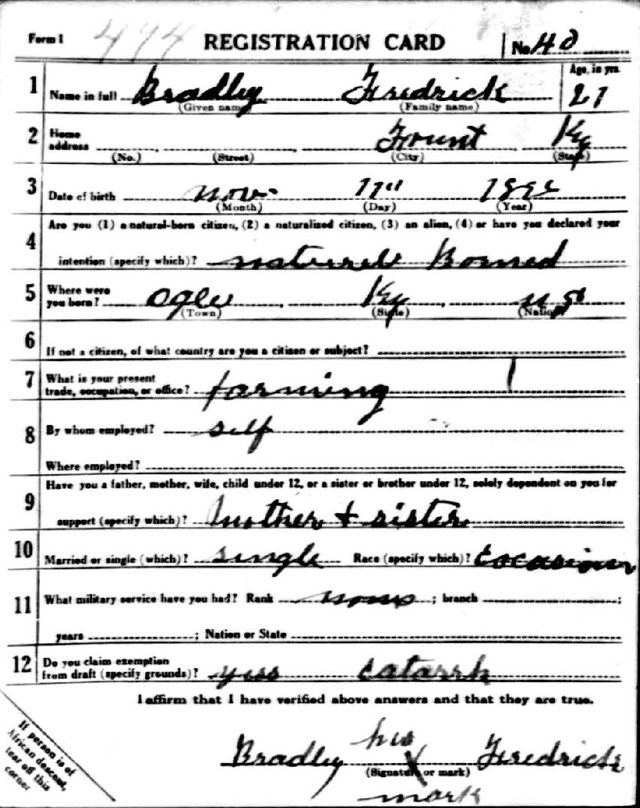 Form 1 494 REGISTRATION CARD No. 40
1 Name in full Bradley Fredrick Age, in yrs. 21
(Given name) (Family name)
2 Home address Fount Ky
(No.) (Street) (City) (State)
3 Date of birth nov. 11th
(Month) (Day) (Year)
4 Are you (1) a natural-born citizen, (2) a naturalized citizen, (3) an alien, (4) or have you declared your
intention (specify which)? naturel Borned
5 Where were you born? Ogle Ky
(Town) (State) (Nation)
6 If not a citizen, of what country are you a citizen or subject?
7 What is your present trade, occupation, or office? farming
8 By whom employed? self
Where employed?
9 Have you a father, mother, wife, child under 12, or a sister or brother under 12, solely dependent on you for
support (specify which)? Mother + sister
10 Married or single (which)? single Race (specify which)?
11 What military service have you had? Rank ; branch ;
years ; Nation or State
12 Do you claim exemption from draft (specify grounds)? yess catarrh
I affirm that I have verified above answers and that they are true.
If person is of
African descent,
tear off this
corner.
Bradley his X Fredrick
(Signature or mark)
mark